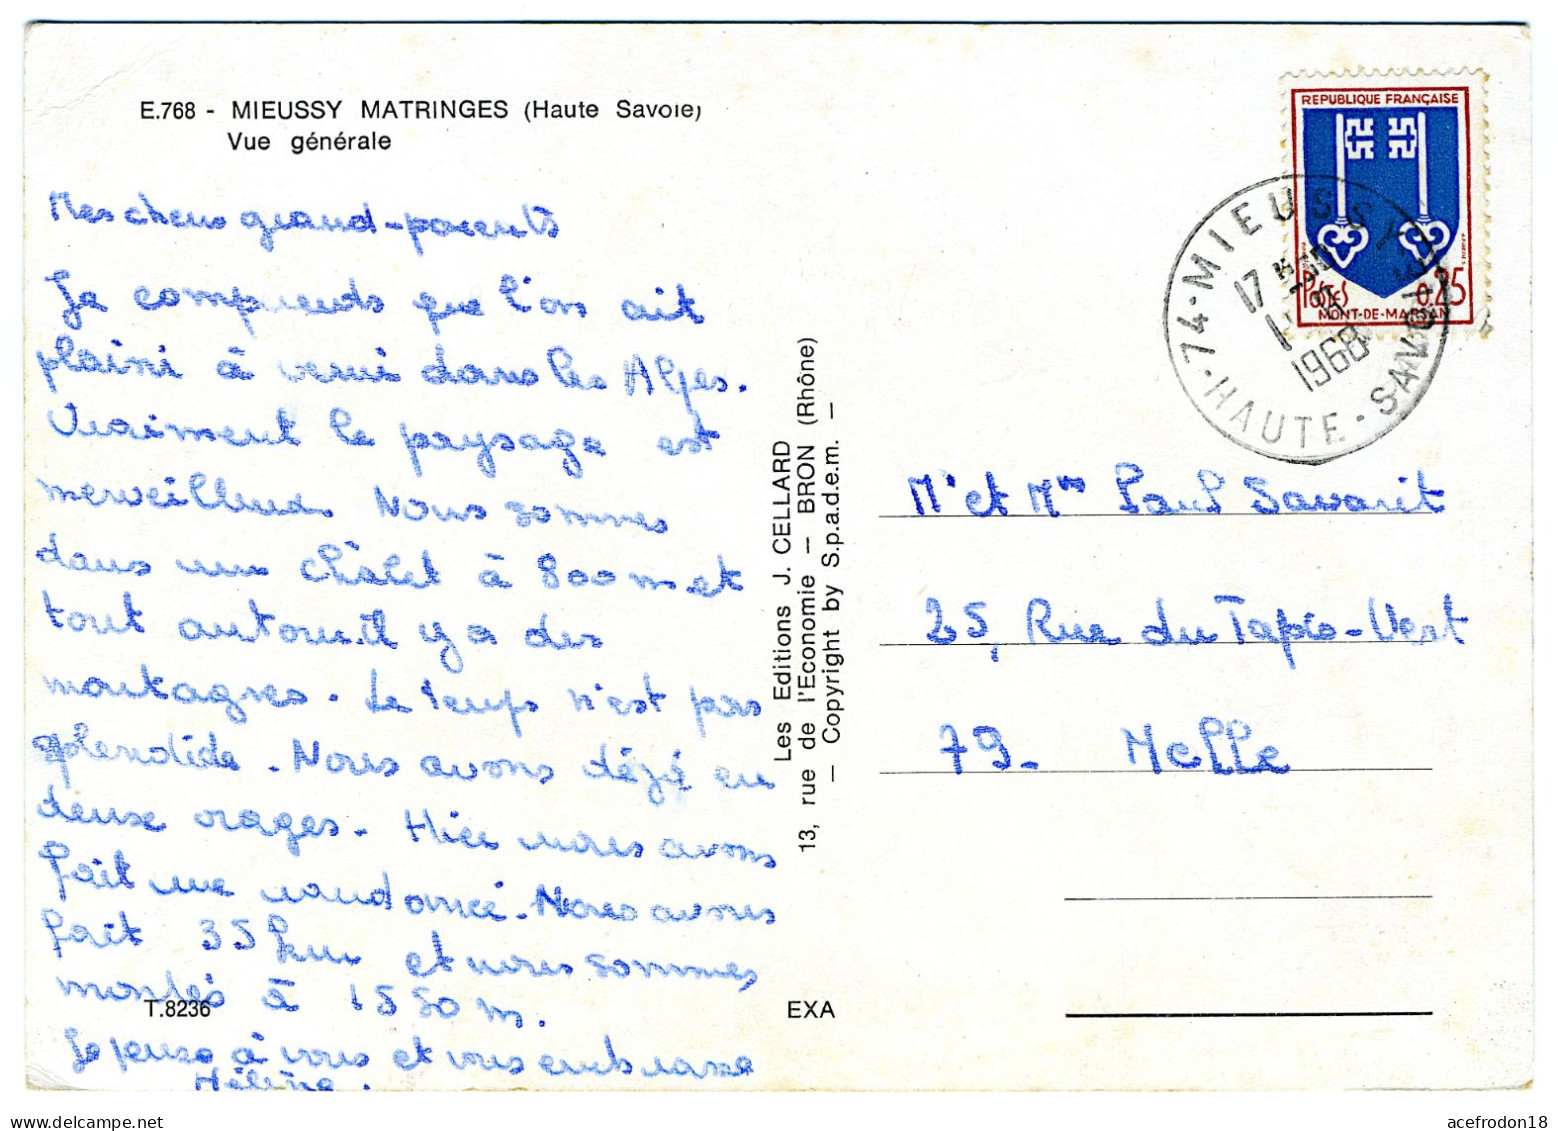 E.768 - MIEUSSY MATRINGES (Haute Savoie)
Vue générale
Mes chers grand-parents
Je comprends que l'on ait
plaisir à venir dans les Alpes.
Vraiment le paysage est
merveilleux. Nous sommes
dans un châlet à 800 m et
tout autour il y a des
montagnes. Le temps n'est pas
splendide. Nous avons déjà eu
deux orages. Hier nous avons
fait une randonnée. Nous avons
fait 35 km et nous sommes
montés à 1550 m.
Je pense à vous et vous embrasse
Hélène.
T.8236
Les Editions J. CELLARD
13, rue de l'Economie - BRON (Rhône)
- Copyright by S.p.a.d.e.m. -
EXA
REPUBLIQUE FRANÇAISE
POSTES
0,25
MONT-DE-MARSAN
74 - MIEUSSY
HAUTE-SAVOIE
17 H30
1968
Mr et Mme Paul Savarit
25, Rue du Tapis-Vert
79- Melle
acefrodon18